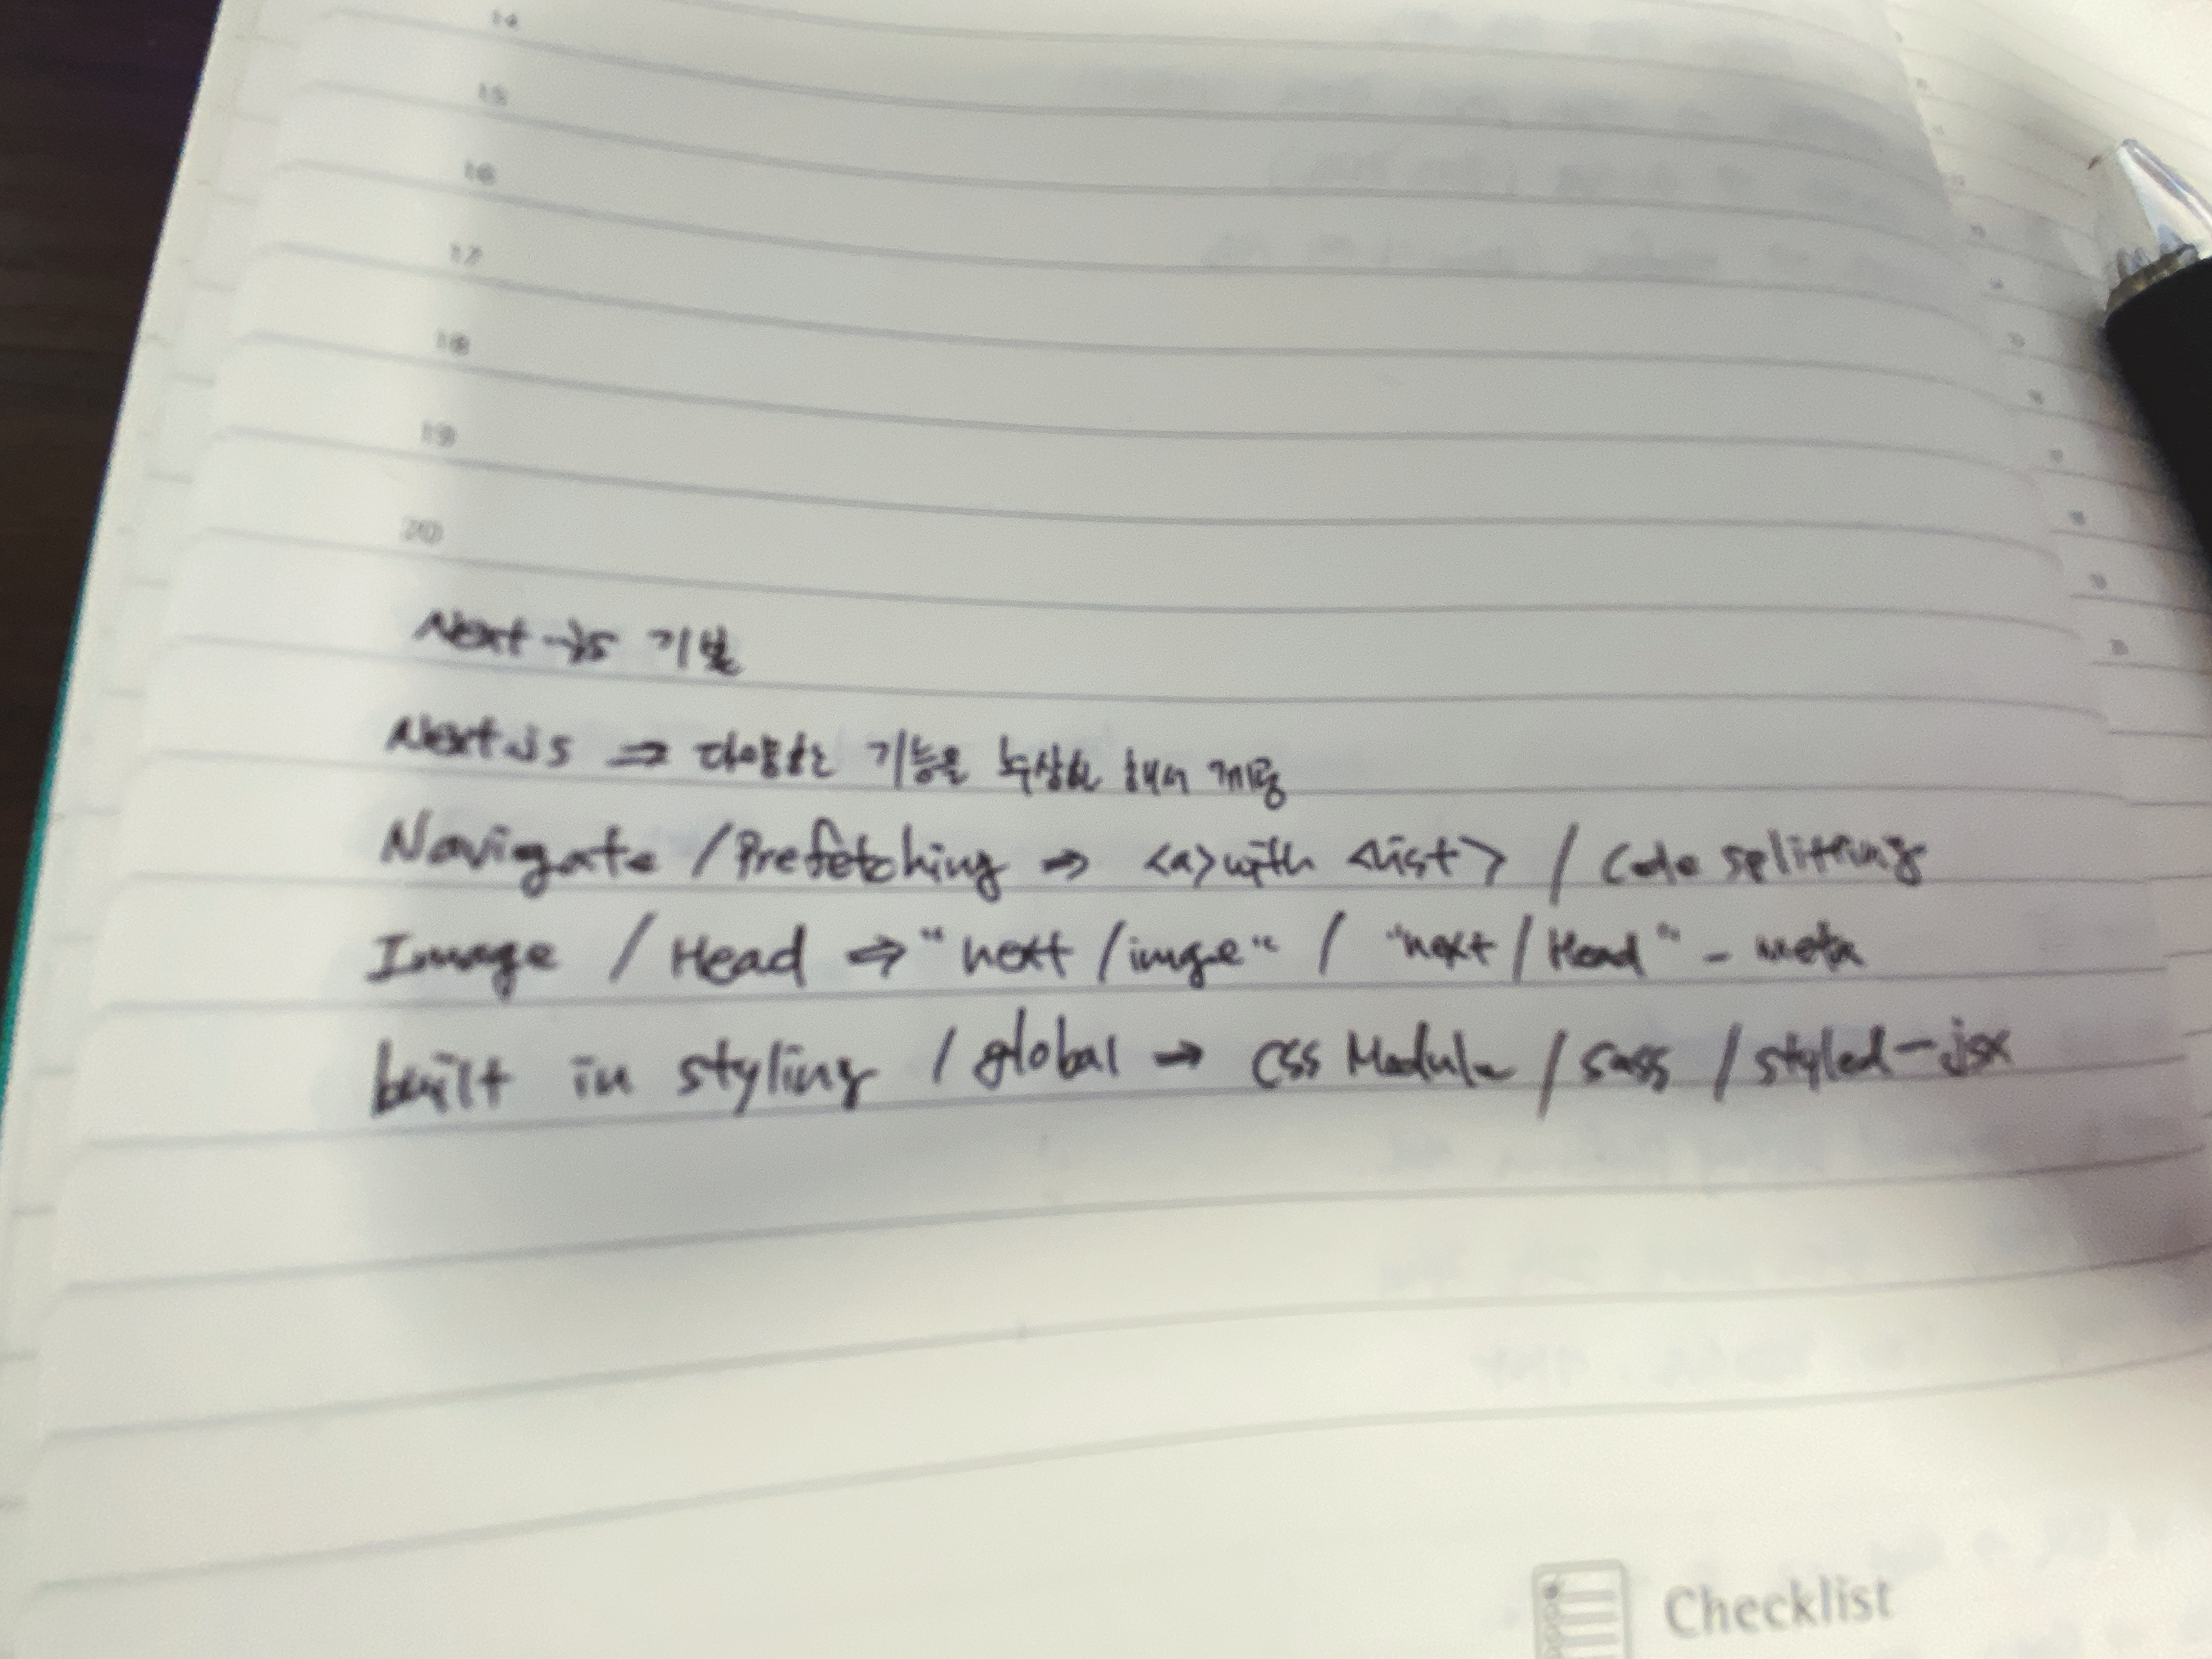 14
15
16
17
18
19
20
Next.js 기본
Next.js ⇒ 다양한 기능을 추상화 해서 제공
Navigate / Prefetching ⇒ <a> with <list> / Code splitting
Image / Head ⇒ "next / imge" / "next / Head" - meta
built in styling / global → CSS Module / Sass / styled-jsx
Checklist